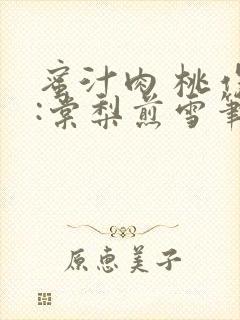 蜜汁肉桃作
:棠梨煎雪筆
原恵美子